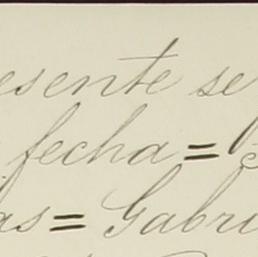 esente se
fecha =
as = Gabri